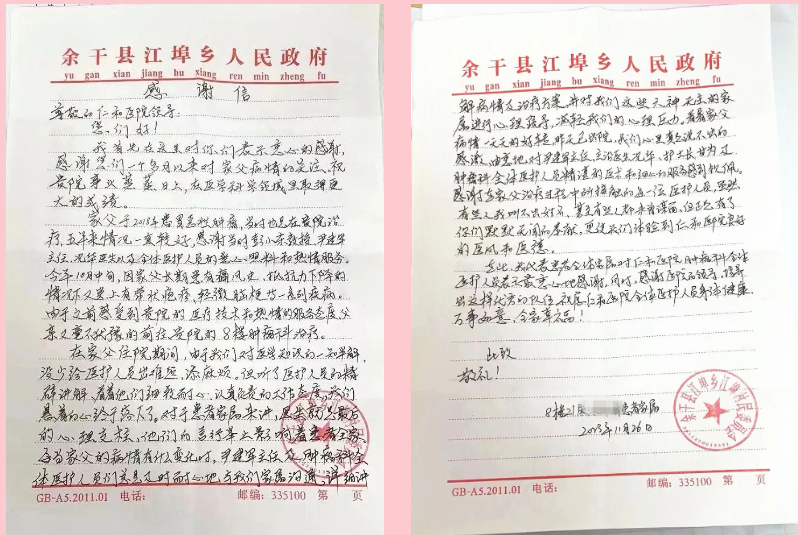 余干县江埠乡人民政府
yu gan xian jiang bu xiang ren min zheng fu
感 谢 信
尊敬的仁和医院领导:
您们好!
我首先在这里对你们表示衷心的感谢,
感谢您们一个多月以来对家父病情的关注,祝
贵院事业蒸蒸日上,在医学科学领域里取得更
大的成绩。
家父于2018年患胃恶性肿瘤,当时也是在贵院治
疗,五年来情况一直较好,感谢当时彭小东教授、尹建军
主任、况华医生以及全体医护人员的悉心照料和热情服务。
今年10月中旬,因家父长期患有痛风史,抵抗力下降的
情况下又患上有带状疱疹,轻微脑梗等一系列疾病。
由于之前感受到贵院的医疗技术和热情的服务态度,父
亲又毫不犹豫的前往贵院的8楼肿瘤科治疗。
在家父住院期间,由于我们对医学知识的一知半解,
没少给医护人员出难题,添麻烦,但听了医护人员的精
辟讲解,看着他们细致而耐心、认真负责的工作态度,我们
悬着的心终于落下了。对于患者家属来讲,医生就是最后
的心理支柱,他们的言行举止影响着患者全家,
每当家父的病情有什么变化时,尹建军主任及肿瘤科全
体医护人员们总是及时而耐心地与我们家属沟通,详细讲
GB-A5.2011.01 电话: 邮编:335100 第 页
余干县江埠乡人民政府
yu gan xian jiang bu xiang ren min zheng fu
解病情及治疗方案,并对我们这些六神无主的家
属进行心理疏导,减轻我们的心理压力,看着家父
病情一天天的好转,昨天已出院,我们心里真是说不出的
感激,由衷地对尹建军主任、主治医生况华、护士长
肿瘤科全体医护人员精湛的医术和细心的服务感到钦佩。
感谢在家父治疗过程中所接触的每一位医护人员,虽然
有些人我叫不出好名,甚至有些人都未曾谋面,但正是有了
你们默默无闻的奉献,更使我们体验到仁和医院良好
的医风和医德。
在此,我代表患者全体家属对仁和医院肿瘤科全体
医护人员表示衷心地感谢,同时,感谢医院的领导,培养
出这样优秀的队伍,祝愿仁和医院全体医护人员身体健康
万事如意,全家幸福!
此致
敬礼!
8楼21床 患者家属
2023年11月26日
余干县江埠乡江埠村民委员会
GB-A5.2011.01 电话: 邮编:335100 第 页